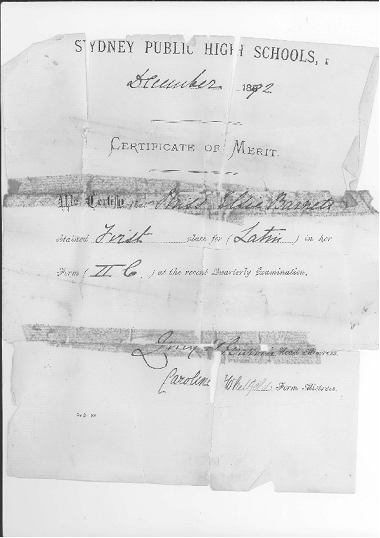 SYDNEY PUBLIC HIGH SCHOOLS,
December 1892
CERTIFICATE OF MERIT.
We Certify that Elsie
obtained First place for (Latin) in her
Form (II C) at the recent Quarterly Examination.
Lucy Head Mistress.
Caroline Form Mistress.